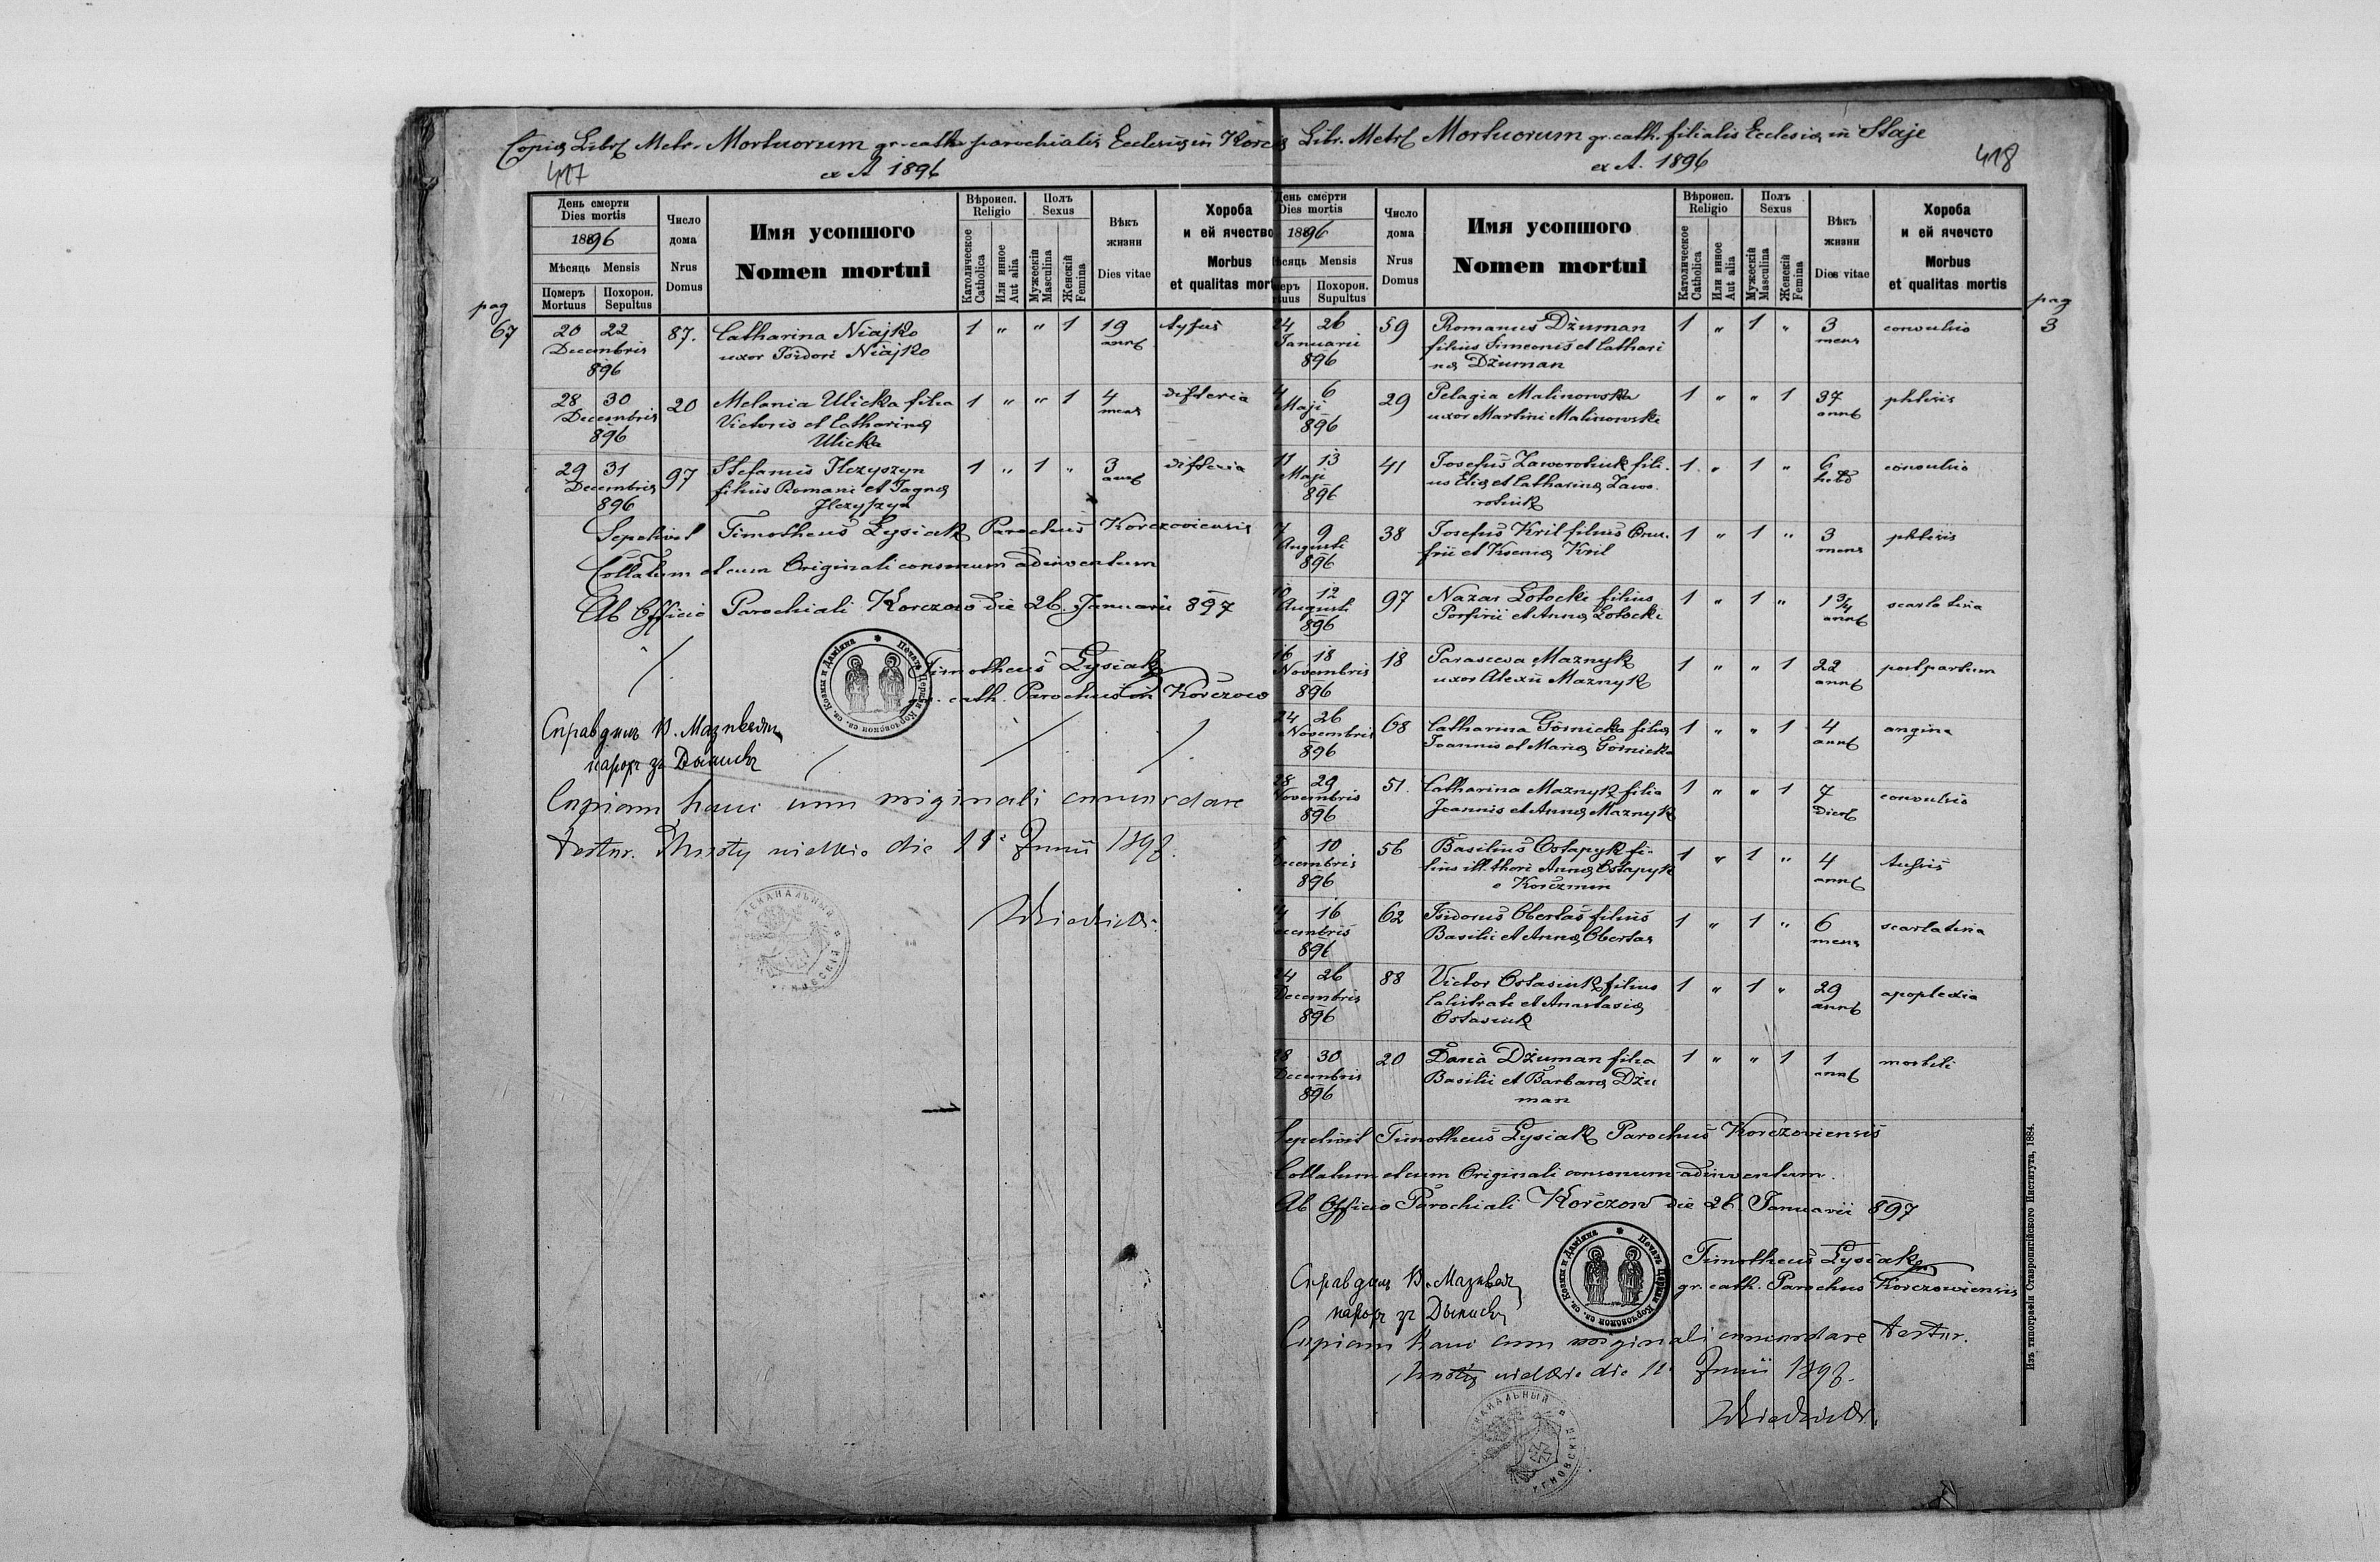 Copia Libri Metr. Mortuorum gr. cath. parochialis Ecclesiæ in Korczow
ex A 1896
417
День смерти
Dies mortis
1896
Мѣсяць Mensis
Померъ Mortuus
Похорон. Sepultus
Число дома
Nrus Domus
Имя усопшого
Nomen mortui
Вѣроисп.
Religio
Католическое Catholica
Или инное Aut alia
Полъ
Sexus
Мужескій Masculina
Женскій Femina
Вѣкъ жизни
Dies vitae
Хороба и ей ячество
Morbus et qualitas mort
pag
67
20 22 87. Catharina Niajko 1 " " 1 19 tyfus
Decembris uxor Isidori Niajko ann
896
28 30 20 Melania Ulicka filia 1 " " 1 4 difteria
Decembris Victoris et Catharinæ mens
896 Ulicka
29 31 97 Stefanus Ilczyszyn 1 " 1 " 3 difteria
Decembris filius Romani et Jagnæ ann
896 Ilczyszyn
Sepelivit Timotheus Lysiak Parochus Korczoviensis
Collatum et cum Originali consonum adinventum
Ab Officio Parochiali Korczow die 26. Januarii 897
Timotheus Lysiak
gr. cath. Parochus in Korczow
Печать Церкви Корчовскои св. св. Козмы и Даміяна
Справдилъ В.
парохъ зъ
Copiam hanc cum originali concordare
testur. Mosty wielkie die 11 Junii 1897.
ДЕКАНАЛЬНЫЙ
Libr. Metr. Mortuorum gr. cath. filialis Ecclesiæ in Staje
ex A. 1896
418
День смерти
Dies mortis
1896
Мѣсяць Mensis
Померъ Mortuus
Похорон. Sepultus
Число дома
Nrus Domus
Имя усопшого
Nomen mortui
Вѣроисп.
Religio
Католическое Catholica
Или инное Aut alia
Полъ
Sexus
Мужескій Masculina
Женскій Femina
Вѣкъ жизни
Dies vitae
Хороба и ей ячечсто
Morbus et qualitas mortis
pag
3
24 26 59 Romanus Dżuman 1 " 1 " 3 convulsio
Januarii filius Simeonis et Cathari mens
896 næ Dżuman
4 6 29 Pelagia Malinowska 1 " " 1 37 phtisis
Maji uxor Martini Malinowski ann
896
11 13 41 Josefus Zaworotiuk fili 1 " 1 " 6 convulsio
Maji us Eliæ et Catharinæ Zawo hebd
896 rotiuk
7 9 38 Josefus Kril filius Onu 1 " 1 " 3 phtisis
Augusti frii et Kseniæ Kril mens
896
10 12 97 Nazar Łotocki filius 1 " 1 " 1 3/4 scarlatina
Augusti Porfirii et Annæ Łotocki ann
896
16 18 18 Parasceva Maznyk 1 " " 1 22 post partum
Novembris uxor Alexii Maznyk ann
896
24 26 68 Catharina Górnicka filia 1 " " 1 4 angina
Novembris Joannis et Mariæ Górnicka ann
896
28 29 51. Catharina Maznyk filia 1 " " 1 7 convulsio
Novembris Joannis et Annæ Maznyk Dier
896
10 56 Basilius Ostapyk fi- 1 " 1 " 4
Decembris lius ill. thori Annæ Ostapyk ann
896 e Korczmin
14 16 62 Isidorus Obertas filius 1 " 1 " 6 scarlatina
Decembris Basilii et Annæ Obertas mens
896
24 26 88 Victor Ostasiuk filius 1 " 1 " 29 apoplexia
Decembris Calistrati et Anastasiæ ann
896 Ostasiuk
28 30 20 Dania Dżuman filia 1 " " 1 1 morbili
Decembris Basilii et Barbaræ Dżu ann
896 man
Sepelivit Timotheus Lysiak Parochus Korczoviensis
Collatum et cum Originali consonum adinventum.
Ab Officio Parochiali Korczow die 26. Januarii 897
Timotheus Lysiak
gr. cath. Parochus Korczowiensis
Печать Церкви Корчовскои св. св. Козмы и Даміяна
Справдилъ В.
парохъ зъ
Copiam hanc cum originali concordare testur.
Mosty wielkie die 11 Junii 1897.
ДЕКАНАЛЬНЫЙ
Изъ типографіи Ставропигійского Института, 1884.